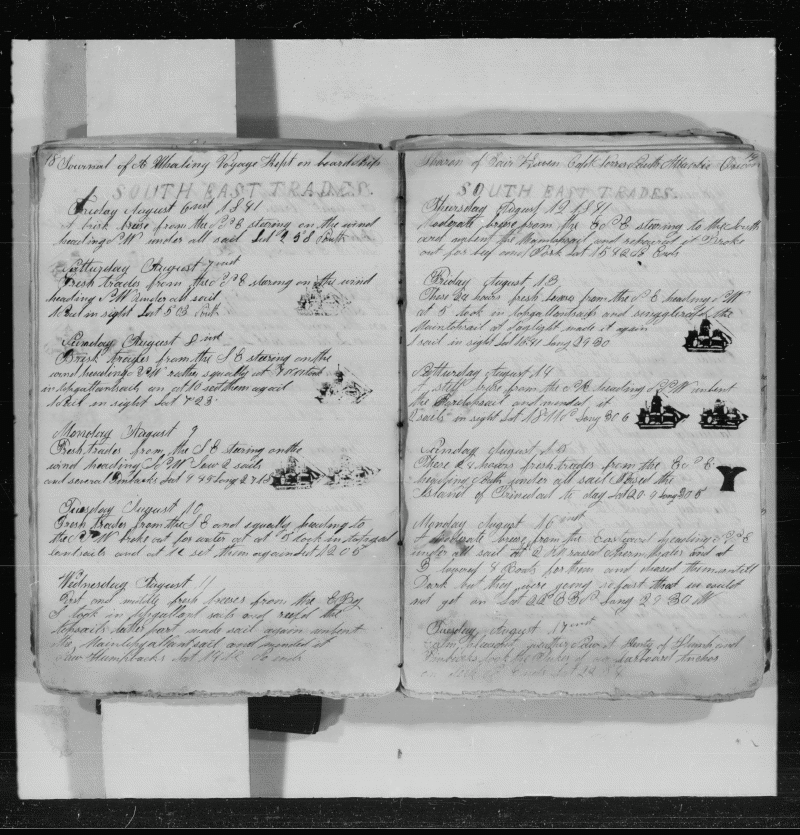 18 Journal of A Whaling Voyage Kept on board Ship
SOUTH EAST TRADES.
Friday August 6 inst 1841
A brisk brise from the S E stering on the wind
heading S W under all sail Lat 2 58 South
Satturday August 7 inst
Fresh trades from the S E stering on the wind
heading S W under all sail
1 Sail in sight Lat 5 South
Sunday August 8 inst
Brisk trades from the S E stering on the
wind heading S W rather squally at took
in topgallantsails an at 10 set them again
1 Sail in sight Lat 7 23
Monday August 9
Fresh trades from the S E stering on the
wind heading S W Saw 2 sails
and several finbacks Lat 9 45 Long 27
Tuesday August 10
Fresh trades from the S E and squally heading to
the S W broke out for water at at 5 took in topgal
lantsails and at 10 set them again Lat 12 05
Wednesday August 11
First and middle fresh breses from the E by
S took in topgallant sails and reefd the
topsails latter part made sail again unbent
the Maintopgallantsail and mended it
Saw Humpbacks Lat 14
Sharon of Fair Haven Capt Norris South Atlantic Ocean 19
SOUTH EAST TRADES.
Thursday August 12 1841
Moderate brise from the E S E stering to the South
and unbent the Maintopsail and repaired it Broke
out for beef and Pork Lat 15 42 S
Friday August 13
These 24 hours fresh breses from the S E heading S W
at 5 took in topgallantsails and singlereefd the
Maintopsail at daylight made it again
1 sail in sight Lat Long 29 30
Satturday August 14
A stiff brise from the S E heading S S W unbent
the foretopsail and mended it
2 sails in sight Lat 18 11 S Long 30 6
Sunday August 15
These 24 hours fresh trades from the E S E
heading South under all sail Passd the
Island of Trinidad to day Lat 20 9 Long 30 5
Monday August 16 inst
A moderate brise from the Eastward heading S S E
under all sail at 2 PM raised Sperm Whales and at
3 lowerd 4 Boats for them and chased them untill
Dark but they were going so fast that we could
not get on Lat 22 6 S Long 29 30 W
Tuesday August 17 inst
weather Saw A Plenty of Humpbacks and
finbacks took the of our larboard anchor
Lat 22